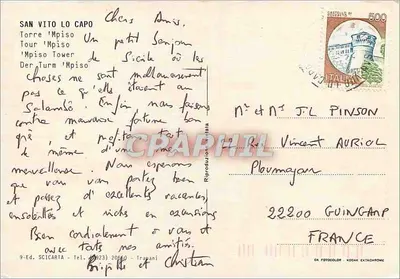 SAN VITO LO CAPO
Torre 'Mpiso
Tour 'Mpiso
'Mpiso Tower
Der Turm 'Mpiso
Chers Amis,
Un petit bonjour
de Sicile où les
choses ne sont malheureusement
pas ce qu'elles étaient au
Salambô. Enfin nous faisons
contre mauvaise fortune bon
gré, et profitons tout
de même d'une mer
merveilleuse. Nous espérons
que vous vous portez bien
et passez d'excellentes vacances,
ensoleillées et riches en excursions
Bien cordialement à vous et
avec toutes nos amitiés.
Brigitte et Christian
9-Ed. SCICARTA - Tel. (0923) Trapani
500
ITALIA
CPARAMA
CPARPHIL
Mr et Me J-L PINSON
Rue Vincent AURIOL
Ploumagoar
22200 GUINGAMP
FRANCE